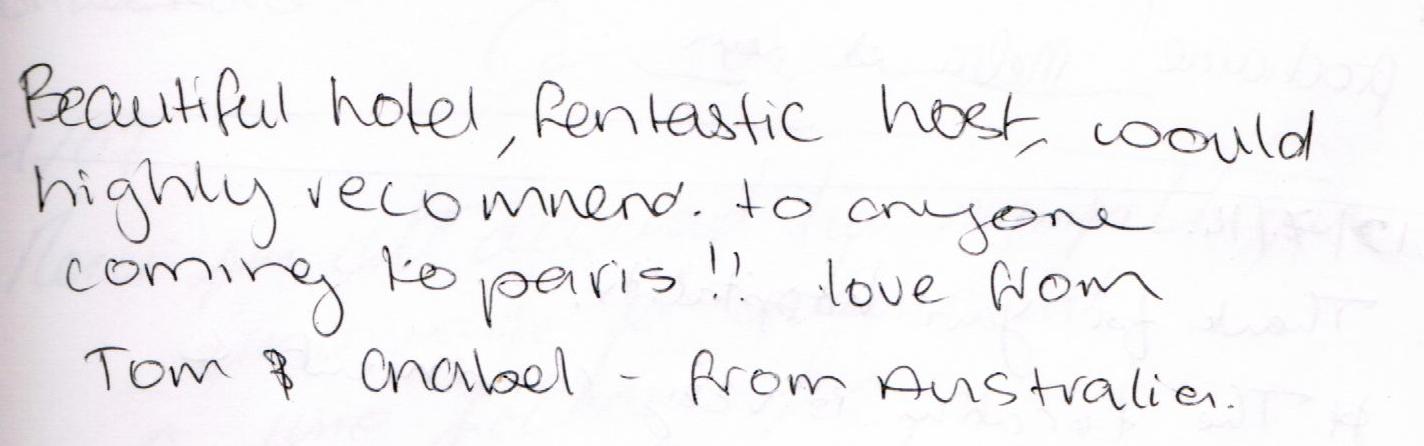 Beautiful hotel, fantastic host, would
highly recommend. to anyone
coming to paris!! love from
Tom & Anabel - from Australia.